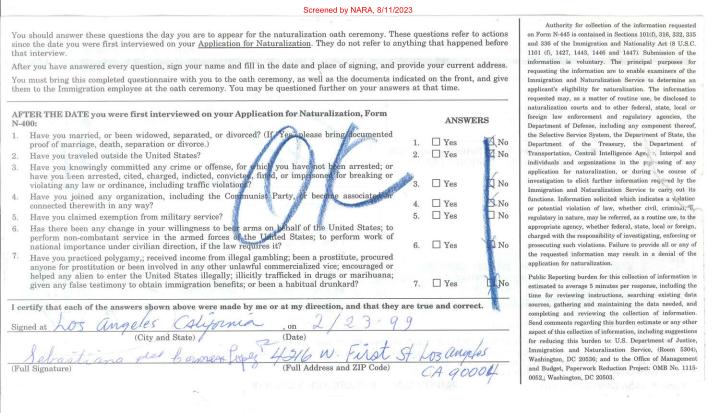 Screened by NARA, 8/11/2023
You should answer these questions the day you are to appear for the naturalization oath ceremony. These questions refer to actions
since the date you were first interviewed on your Application for Naturalization. They do not refer to anything that happened before
that interview.
After you have answered every question, sign your name and fill in the date and place of signing, and provide your current address.
You must bring this completed questionnaire with you to the oath ceremony, as well as the documents indicated on the front, and give
them to the Immigration employee at the oath ceremony. You may be questioned further on your answers at that time.
AFTER THE DATE you were first interviewed on your Application for Naturalization, Form
N-400:
ANSWERS
1. Have you married, or been widowed, separated, or divorced? (If "Yes" please bring documented
proof of marriage, death, separation or divorce.)
1. Yes No
2. Have you traveled outside the United States?
2. Yes No
3. Have you knowingly committed any crime or offense, for which you have not been arrested; or
have you been arrested, cited, charged, indicted, convicted, fined, or imprisoned for breaking or
violating any law or ordinance, including traffic violations?
3. Yes No
4. Have you joined any organization, including the Communist Party, or become associated or
connected therewith in any way?
4. Yes No
5. Have you claimed exemption from military service?
5. Yes No
6. Has there been any change in your willingness to bear arms on behalf of the United States; to
perform non-combatant service in the armed forces of the United States; to perform work of
national importance under civilian direction, if the law requires it?
6. Yes No
7. Have you practiced polygamy,; received income from illegal gambling; been a prostitute, procured
anyone for prostitution or been involved in any other unlawful commercialized vice; encouraged or
helped any alien to enter the United States illegally; illicitly trafficked in drugs or marihuana;
given any false testimony to obtain immigration benefits; or been a habitual drunkard?
7. Yes No
OK
I certify that each of the answers shown above were made by me or at my direction, and that they are true and correct.
Signed at Los Angeles California , on 2/23-99
(City and State) (Date)
Sebastiana del Carmen Lopez 4216 W. First St. Los angeles
(Full Signature) (Full Address and ZIP Code) CA 90004
Authority for collection of the information requested
on Form N-445 is contained in Sections 101(f), 316, 332, 335
and 336 of the Immigration and Nationality Act (8 U.S.C.
1101 (f), 1427, 1443, 1446 and 1447). Submission of the
information is voluntary. The principal purposes for
requesting the information are to enable examiners of the
Immigration and Naturalization Service to determine an
applicant's eligibility for naturalization. The information
requested may, as a matter of routine use, be disclosed to
naturalization courts and to other federal, state, local or
foreign law enforcement and regulatory agencies, the
Department of Defense, including any component thereof,
the Selective Service System, the Department of State, the
Department of the Treasury, the Department of
Transportation, Central Intelligence Agency, Interpol and
individuals and organizations in the processing of any
application for naturalization, or during the course of
investigation to elicit further information required by the
Immigration and Naturalization Service to carry out its
functions. Information solicited which indicates a violation
or potential violation of law, whether civil, criminal, or
regulatory in nature, may be referred, as a routine use, to the
appropriate agency, whether federal, state, local or foreign,
charged with the responsibility of investigating, enforcing or
prosecuting such violations. Failure to provide all or any of
the requested information may result in a denial of the
application for naturalization.
Public Reporting burden for this collection of information is
estimated to average 5 minutes per response, including the
time for reviewing instructions, searching existing data
sources, gathering and maintaining the data needed, and
completing and reviewing the collection of information.
Send comments regarding this burden estimate or any other
aspect of this collection of information, including suggestions
for reducing this burden to: U.S. Department of Justice,
Immigration and Naturalization Service, (Room 5304),
Washington, DC 20536; and to the Office of Management
and Budget, Paperwork Reduction Project: OMB No. 1115-
0052,; Washington, DC 20503.